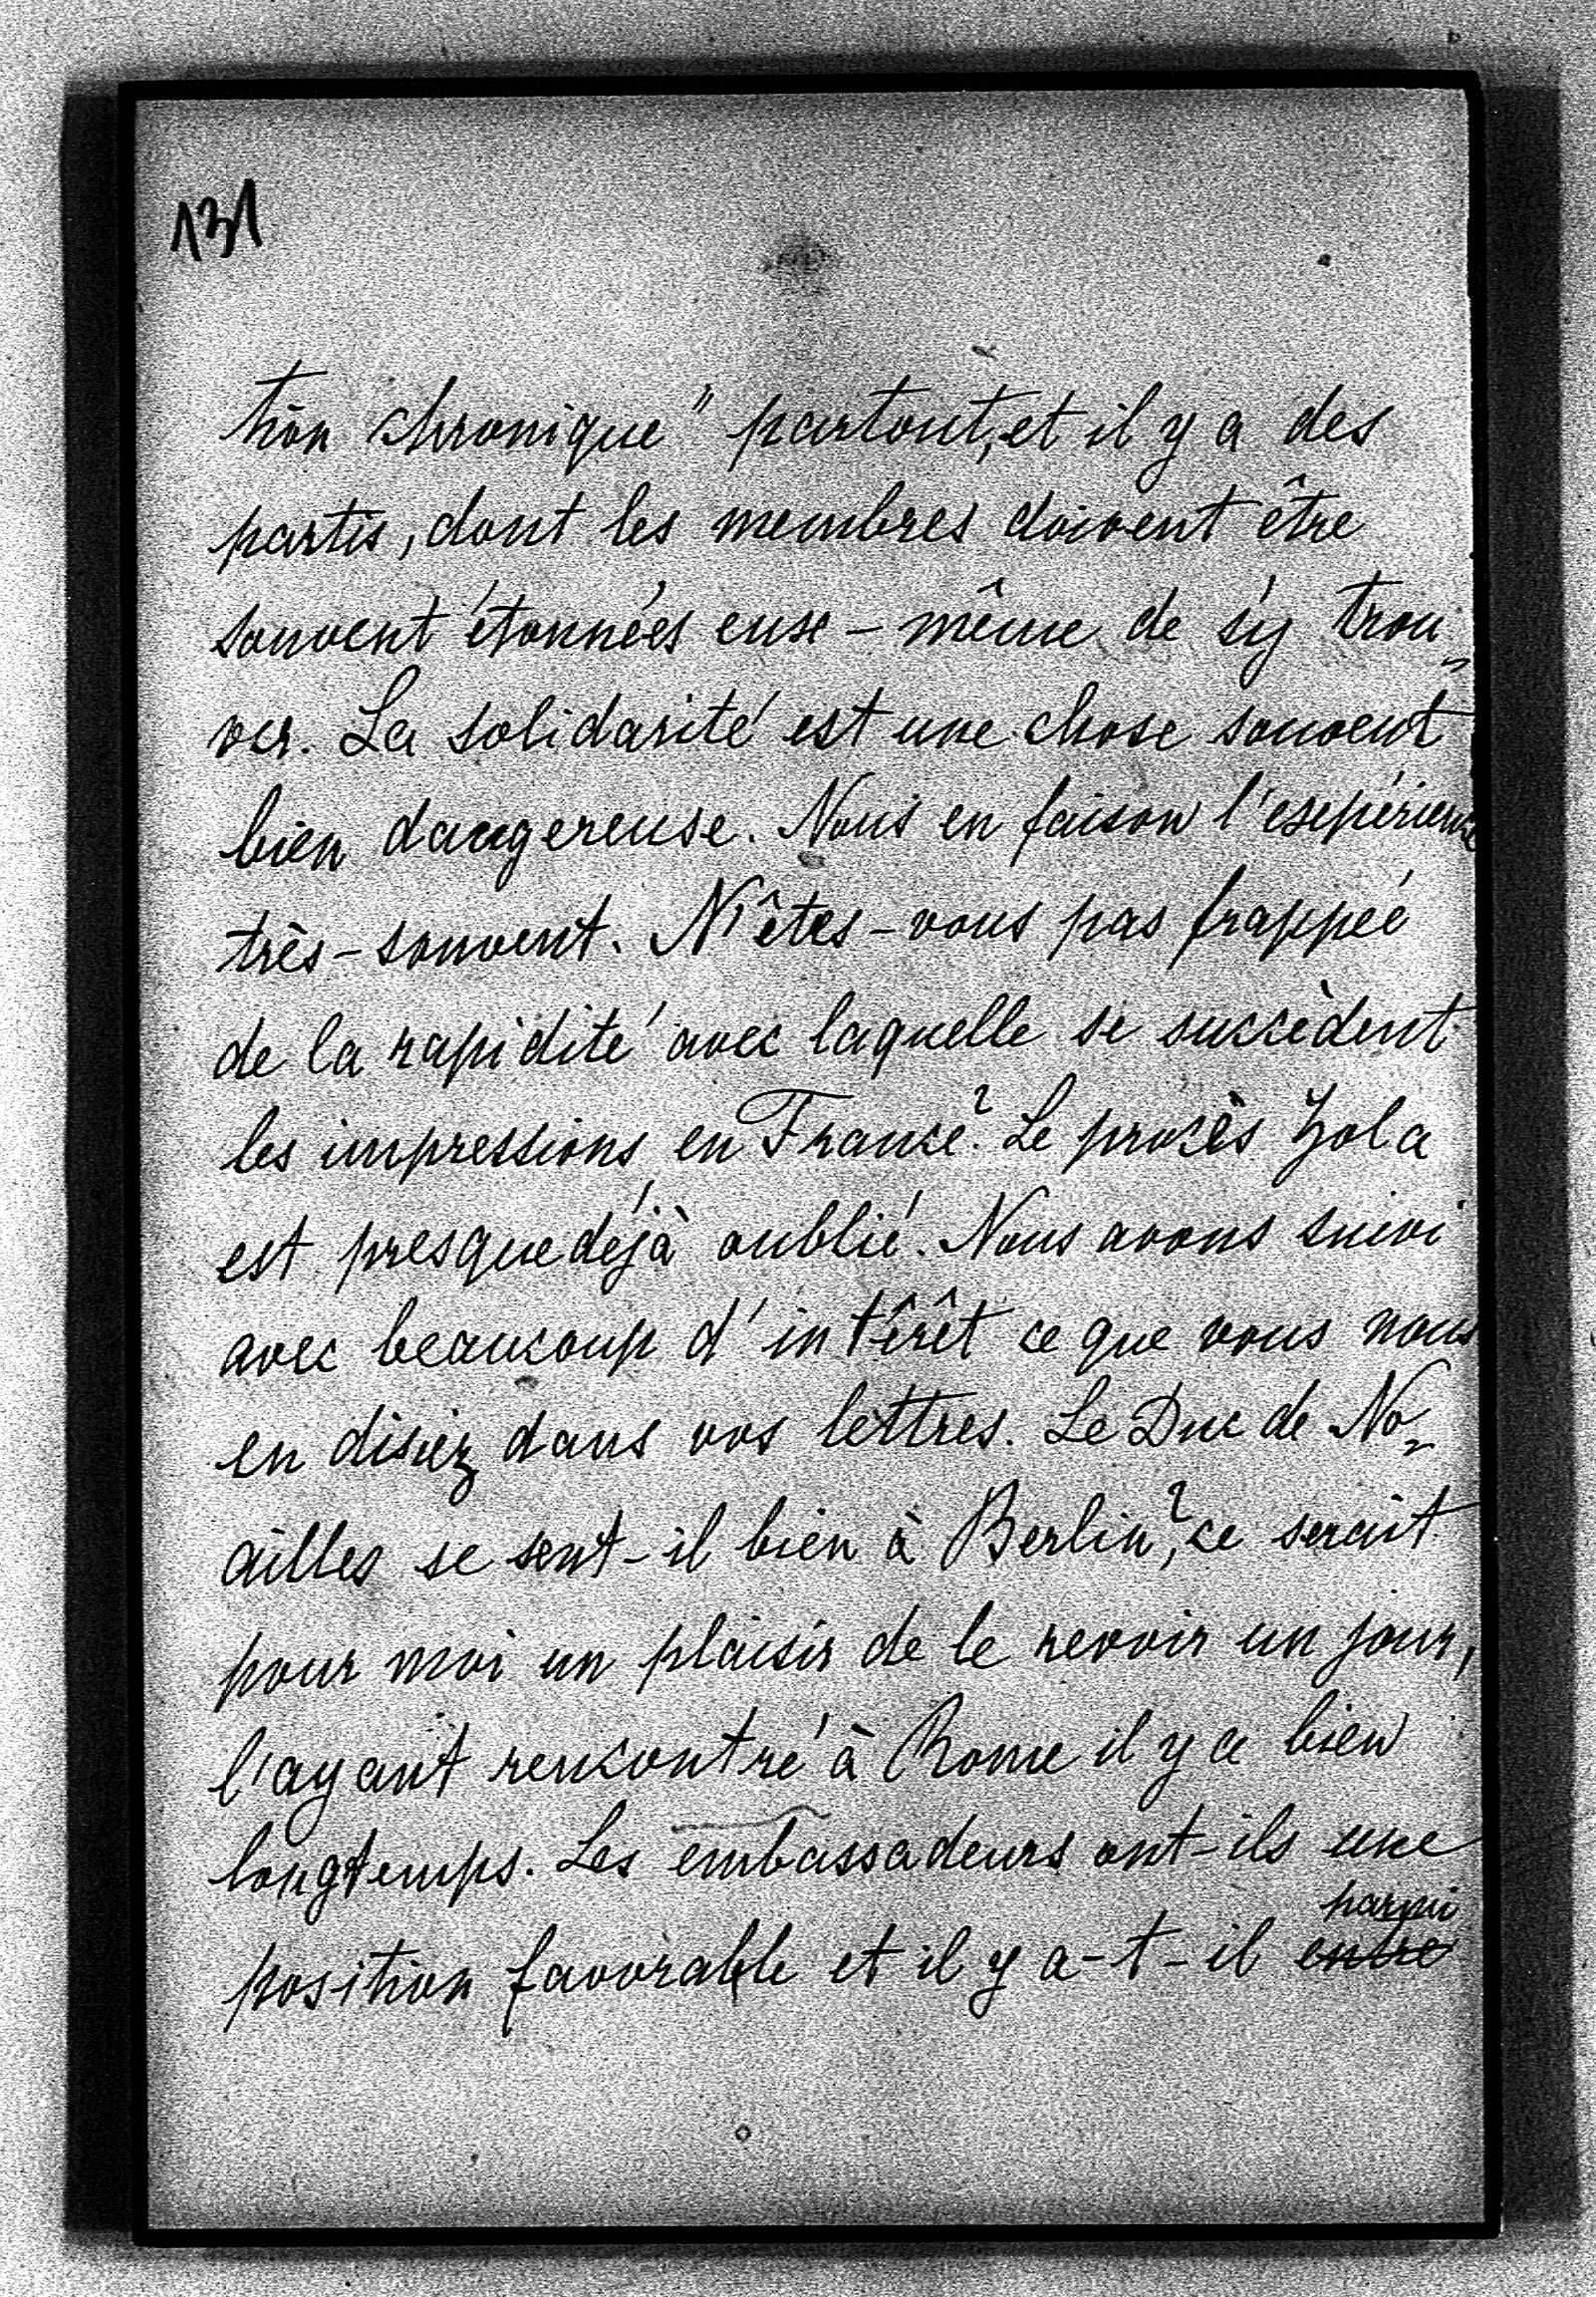 131
tion chronique" partout, et il y a des
partis, dont les membres doivent être
souvent étonnées eux-même de s'y trou-
ver. La solidarité est une chose souvent
bien dangereuse. Nous en faison l'expérience
très-souvent. N'êtes-vous pas frappée
de la rapidité avec laquelle se succèdent
les impressions en France? Le procès Zola
est presque déjà oublié. Nous avons suivi
avec beaucoup d'intêrêt ce que vous nous
en disiez dans vos lettres. Le Duc de No-
ailles se sent-il bien à Berlin?, ce serait
pour moi un plaisir de le revoir un jour,
l'ayant rencontré à Rome il y a bien
longtemps. Les embassadeurs ont-ils une
parmi
position favorable et il y a-t-il entre